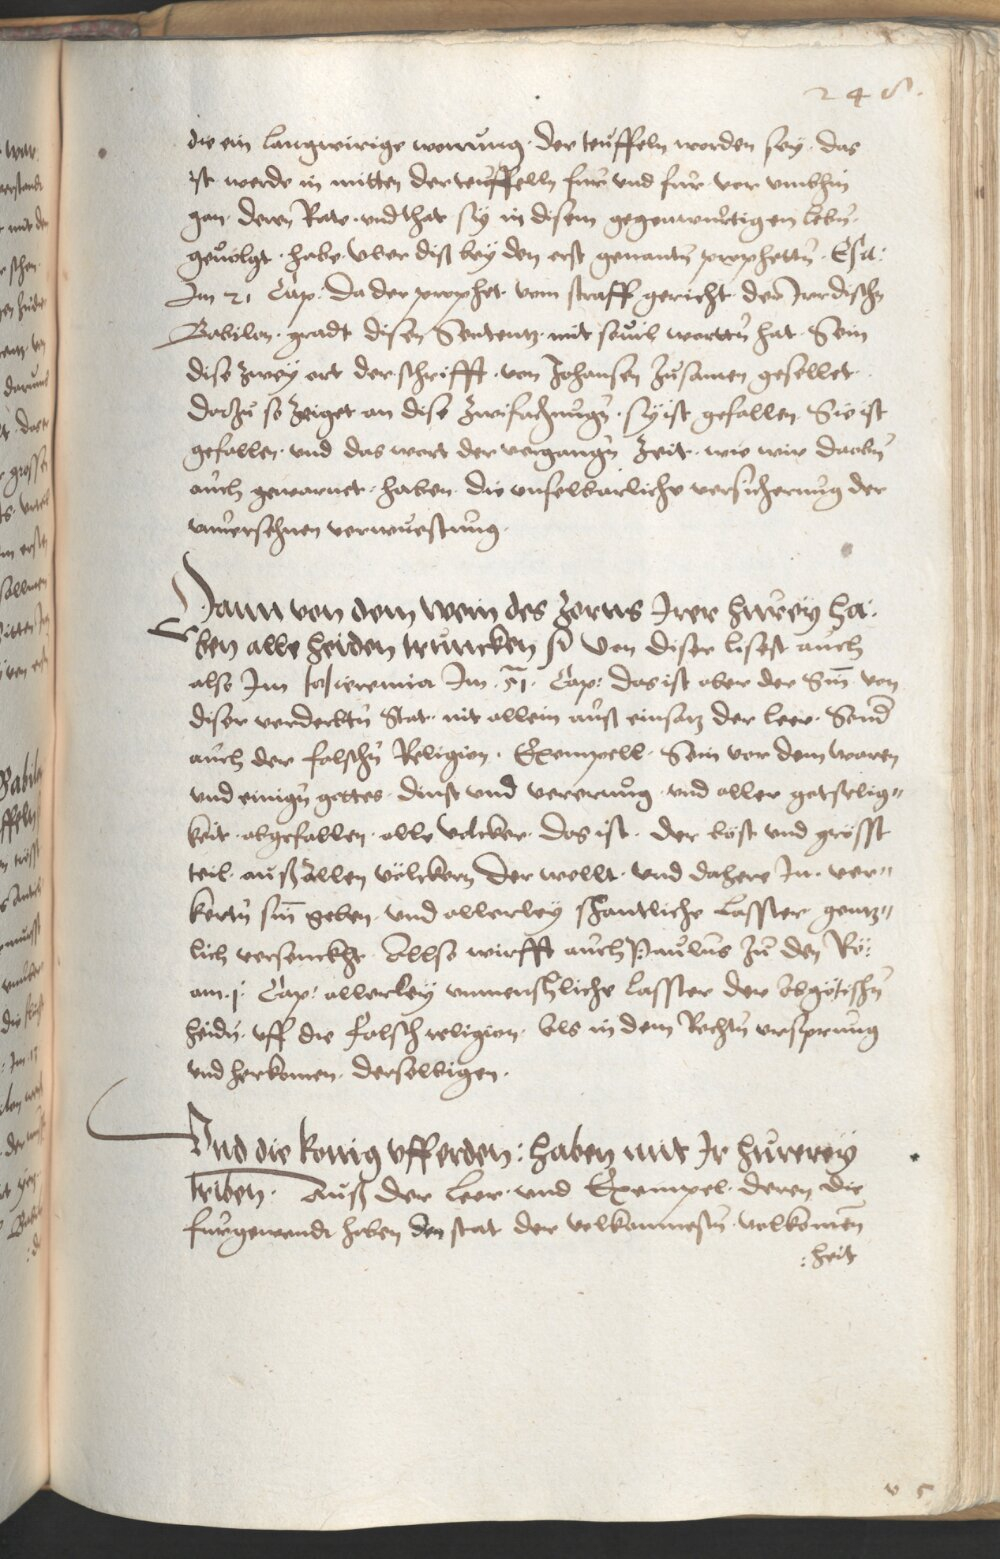 248.
die ein langwirige wonung der teuffeln worden sey. das
ist werde in mitten der teuffelln fur und fur
gan. deren Rat. und that sy in disem gegenwurtigen lebn
gevolgt. habe. uber diß bey den erst genantn prophettn. Esa:
Im 21 Cap: Da der prophet vom straff gericht der Irrdischn
Babilon. gradt disen Sententz. mit sovil wortn hat. Sein
dise zwey ort der schrifft. von Johansen zusamen gesellet.
darzu so zeiget an dise zwifachnugn. sy ist gefallen. Sie ist
gefallen. und das wort der vergangn zeit. wie wir daobn
auch gewarnet. haben. die unfelbarliche versicherung der
unversehnen verwuestung.
Dann von dem wein des zorns Irer hurey ha:
ben alle heiden truncken Von diser lisest auch
also Im Jeremia Im. 51. Cap: das ist aber der Sin von
diser verderbtn Stat. nit allein auß einsatz der leer. Sond
auch der falschn Religion. Exempell. Sein von dem waren
und einign gottes. dinst und vererung. und aller gotselig"
keit. abgefallen. alle velcker. das ist. der böst und gröst
teil. auß allen völckern der wellt. und dahere In. ver"
kertn sin geben. und allerley schantliche Lasster gentz"
lich versenckht. Allso wirfft auch Paulus zu den Rö:
am j. Cap: allerley unmenschliche lasster der abgötischn
heidn. uff die falsch religion. als in den Rechtn ursprung
und herkomen. derselbigen.
Und die konig uff erden: haben mit Ir hurerey
triben. Auß der leer. und Exempel. deren die
furgewendt haben den stat der volkommestn volkomen
: heit
v 5